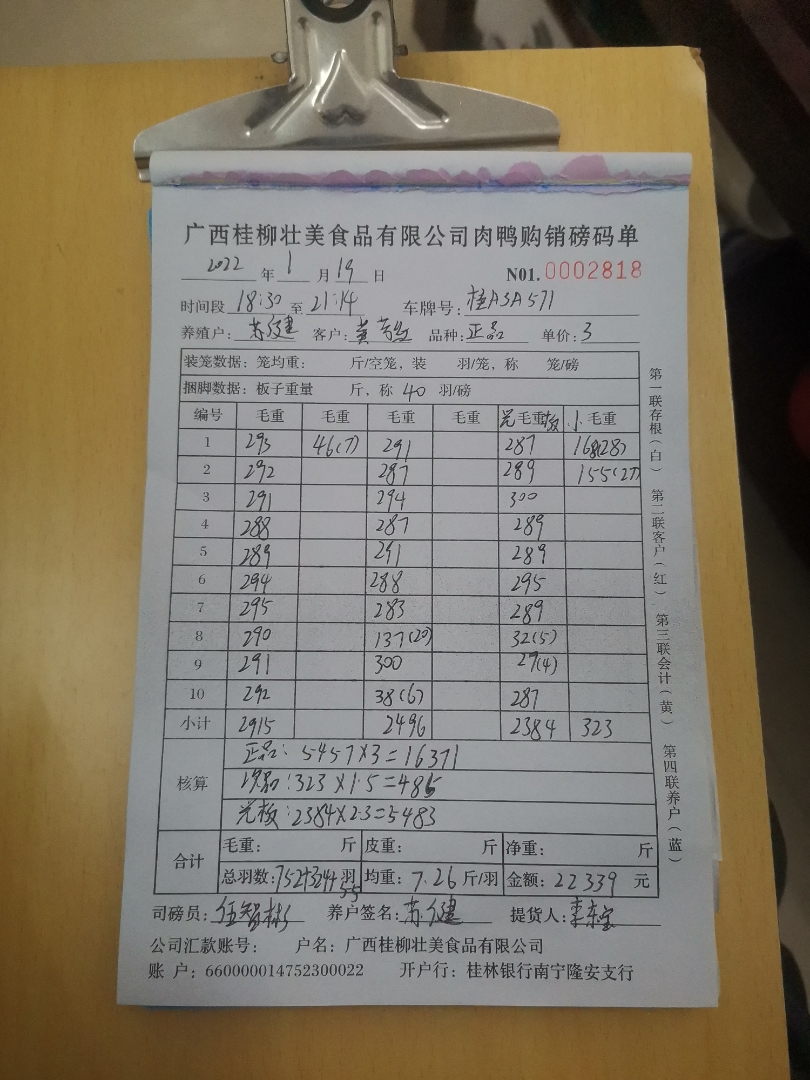 广西桂柳壮美食品有限公司肉鸭购销磅码单
2022 年 1 月 19 日 N01. 0002818
时间段 18:30 至 21:14 车牌号: 桂A3A571
养殖户: 苏健 客户: 黄 品种: 正品 单价: 3
装笼数据: 笼均重: 斤/空笼, 装 羽/笼, 称 笼/磅
捆脚数据: 板子重量 斤, 称 40 羽/磅
编号 毛重 毛重 毛重 毛重 光毛重板 小毛重
1 295 46(7) 291 287 168(28)
2 292 287 289 155(27)
3 291 294 300
4 288 287 289
5 289 291 289
6 294 288 295
7 295 283 289
8 290 137(20) 32(5)
9 291 300 27(4)
10 292 38(6) 287
小计 2915 2496 2384 323
核算
正品: 5457×3=16371
次品:323×1.5=485
光板:2384×2.3=5483
合计
毛重: 斤 皮重: 斤 净重: 斤
总羽数:752+324+ 羽 55 均重: 7.26 斤/羽 金额: 22339 元
司磅员: 伍智彬 养户签名: 苏健 提货人:
公司汇款账号: 户名: 广西桂柳壮美食品有限公司
账 户: 660000014752300022 开户行: 桂林银行南宁隆安支行
第一联存根(白) 第二联客户(红) 第三联会计(黄) 第四联养户(蓝)